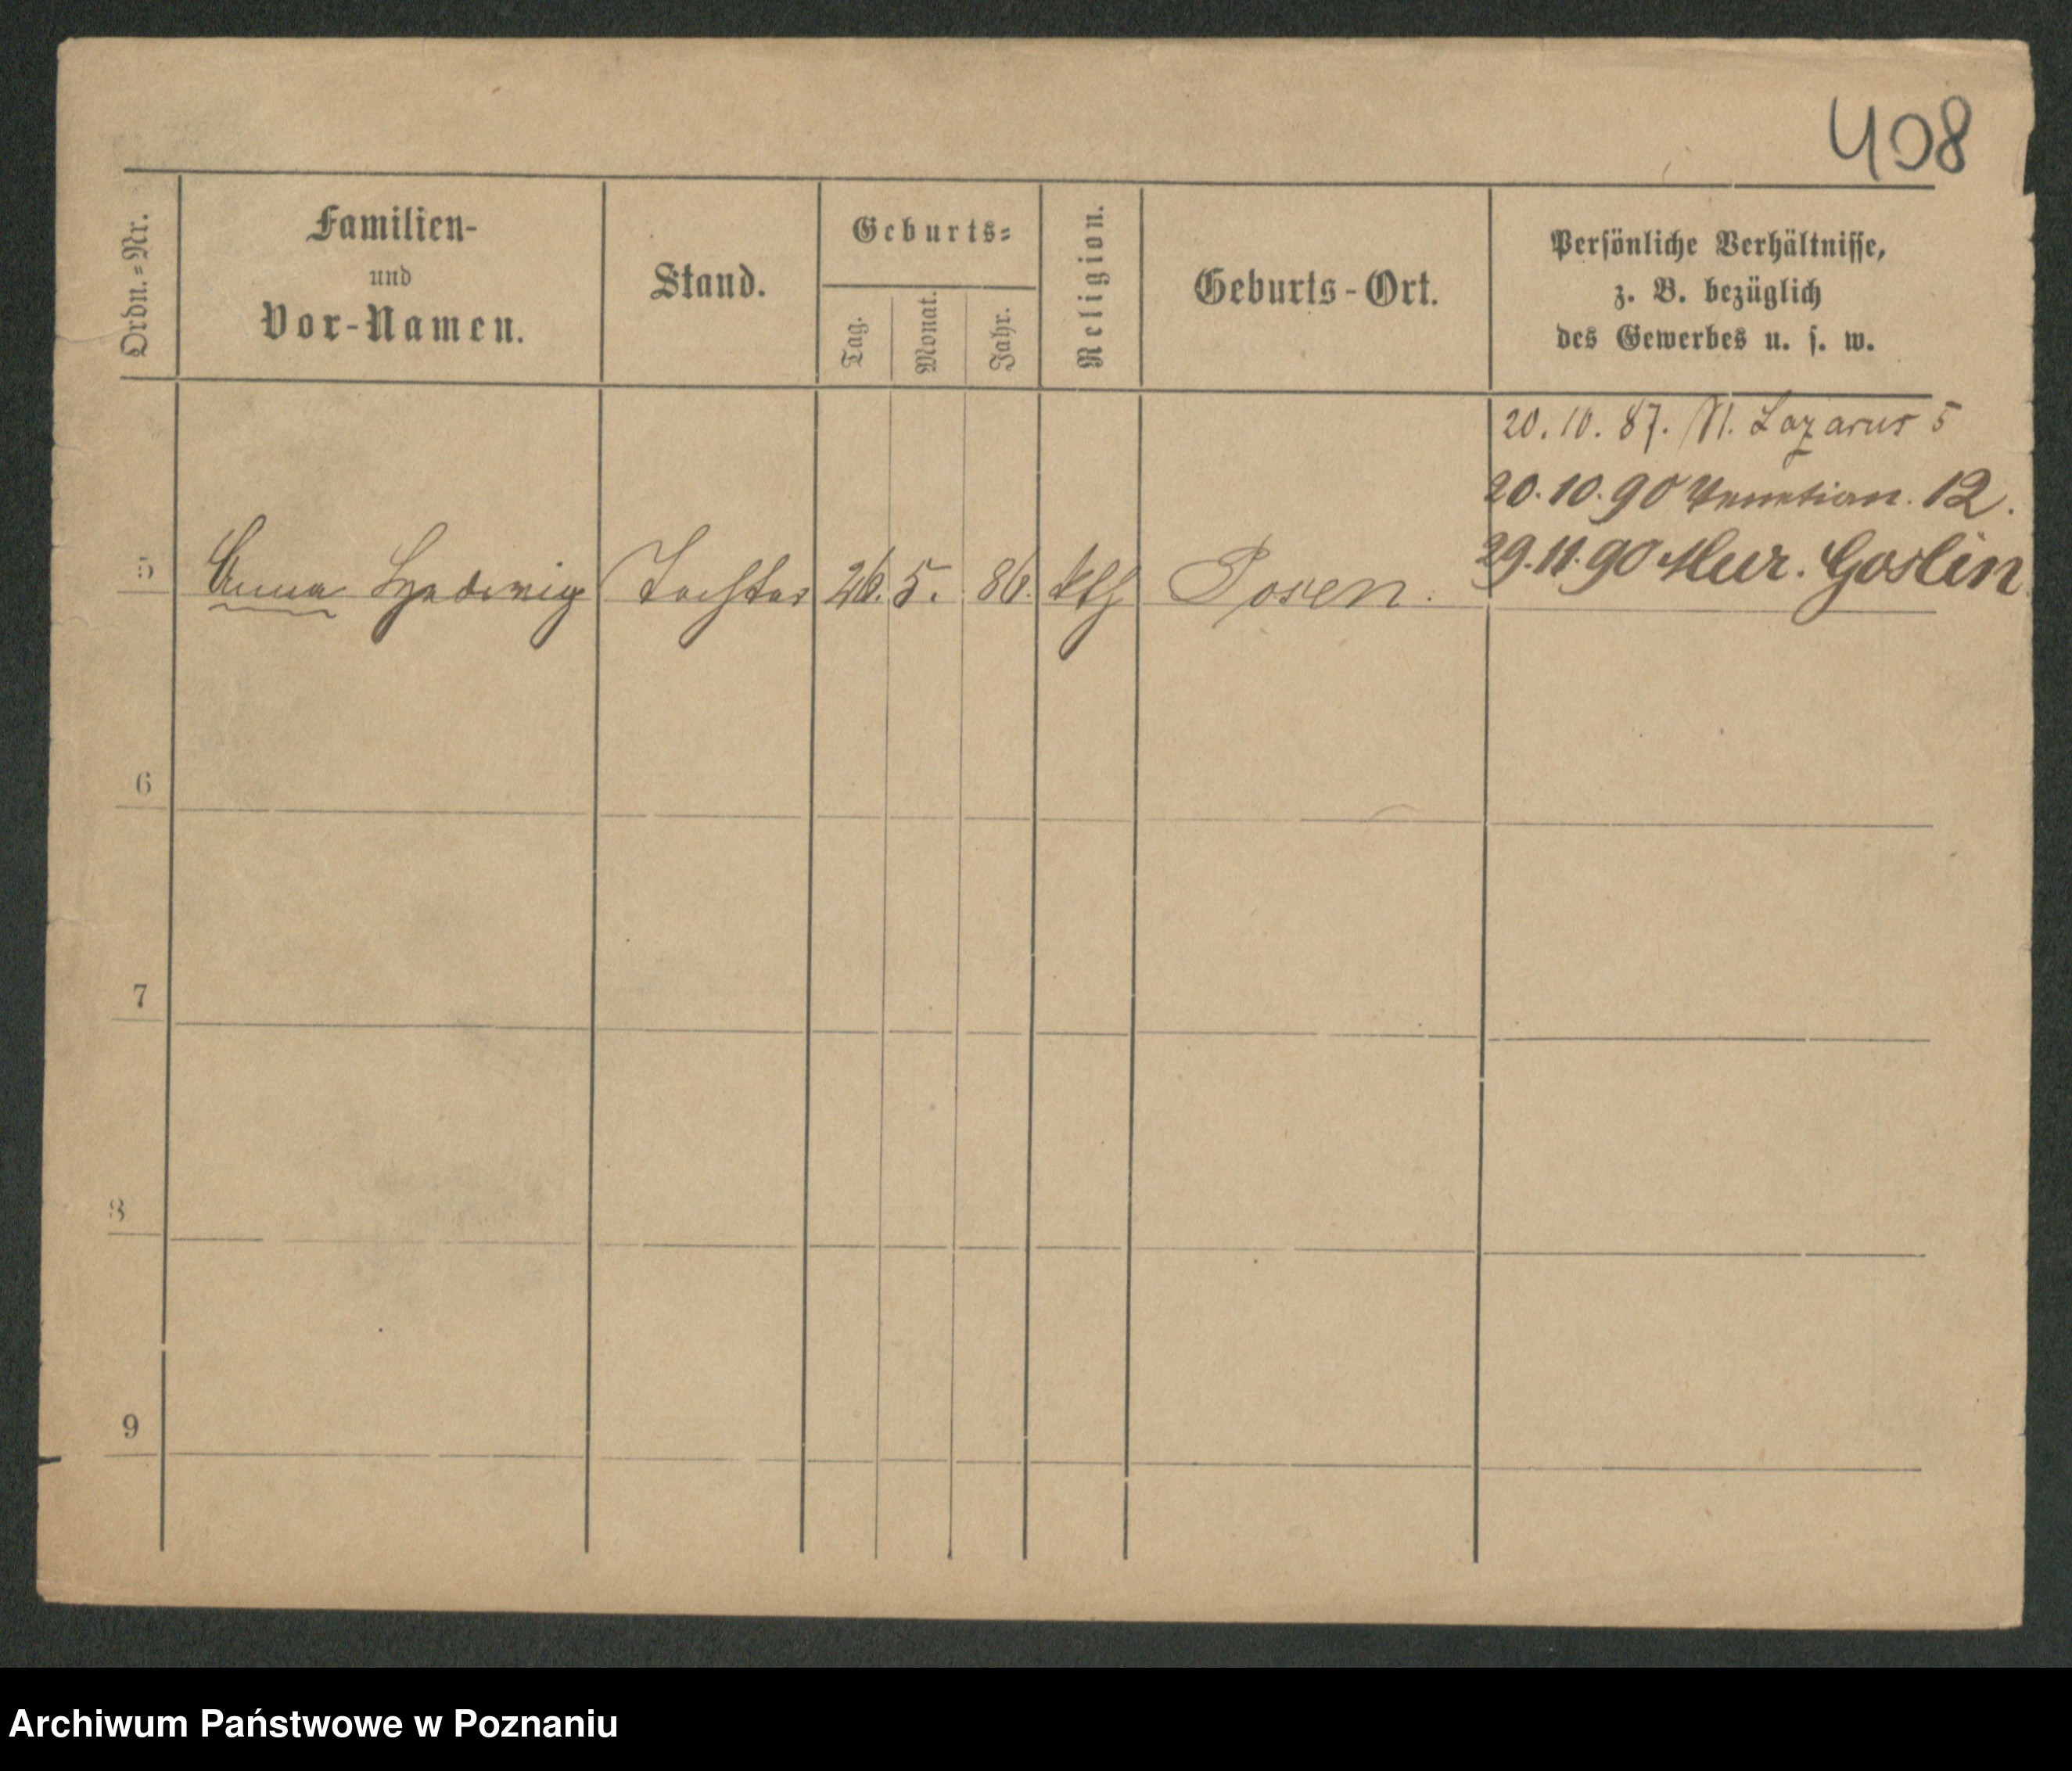 408
Ordn.=Nr.
Familien-
und
Vor-Namen.
Stand.
Geburts=
Tag.
Monat.
Jahr.
Religion.
Geburts-Ort.
Persönliche Verhältnisse,
z. B. bezüglich
des Gewerbes u. s. w.
20. 10. 87. St. Lazarus 5
20. 10. 90 Venetian. 12.
29. 11. 90 Mur. Goslin
5 Anna Hedwig Tochter 26. 5. 86. kth Posen.
6
7
8
9
Archiwum Państwowe w Poznaniu